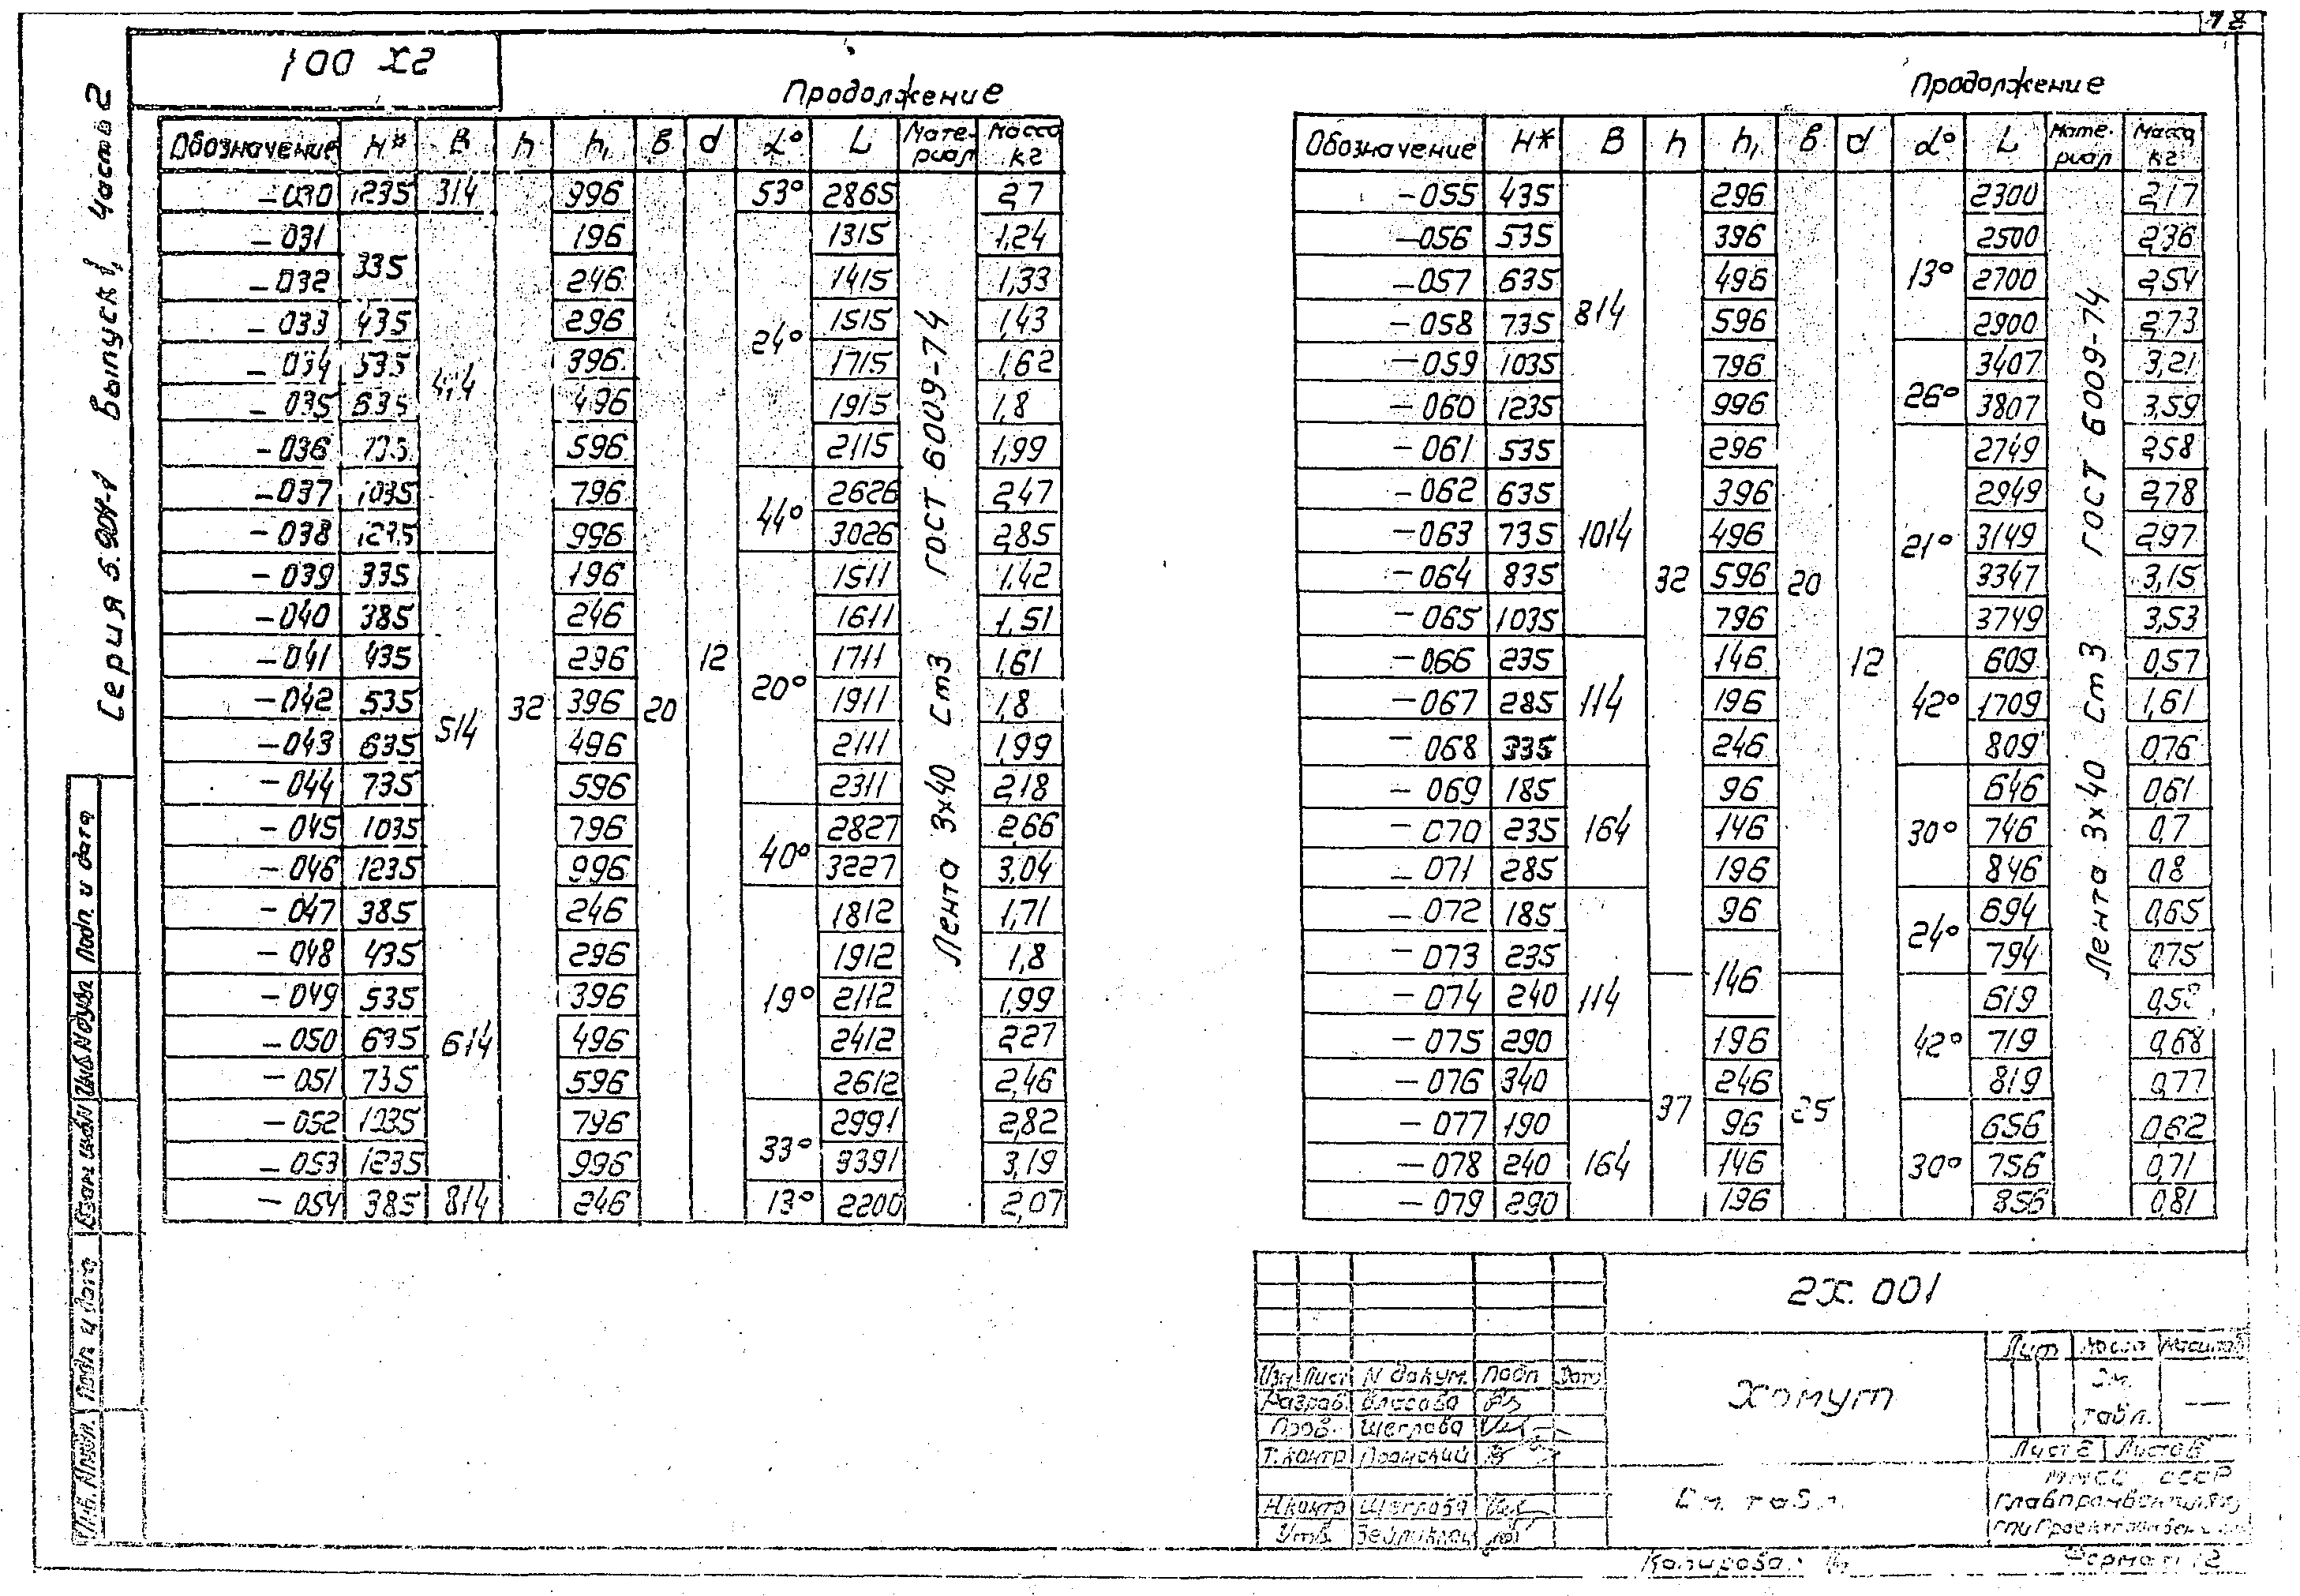 78
100 Х2
Серия 5.904-1 Выпуск 1, Часть 2
Продолжение
Обозначение H* B h h₁ в d α° L Материал Масса кг
-030 1235 314 996 53° 2865 2,7
-031 335 196 1315 1,24
-032 246 1415 1,33
-033 435 296 1515 1,43
-034 535 414 396 24° 1715 1,62
-035 635 496 1915 1,8
-036 735 596 2115 1,99
-037 1035 796 44° 2626 2,47
-038 1235 996 3026 2,85
-039 335 196 1511 1,42
-040 385 246 1611 1,51
-041 435 296 12 1711 1,61
-042 535 32 396 20 20° 1911 1,8
-043 635 514 496 2111 1,99
-044 735 596 2311 2,18
-045 1035 796 40° 2827 2,66
-046 1235 996 3227 3,04
-047 385 246 1812 1,71
-048 435 296 1912 1,8
-049 535 396 19° 2112 1,99
-050 635 614 496 2412 2,27
-051 735 596 2612 2,46
-052 1035 796 33° 2991 2,82
-053 1235 996 3391 3,19
-054 385 814 246 13° 2200 2,07
Лента 3х40 Ст3 ГОСТ 6009-74
Продолжение
Обозначение H* B h h₁ в d α° L Материал Масса кг
-055 435 296 2300 2,17
-056 535 396 13° 2500 2,36
-057 635 496 2700 2,54
-058 735 814 596 2900 2,73
-059 1035 796 26° 3407 3,21
-060 1235 996 3807 3,59
-061 535 296 2749 2,58
-062 635 396 2949 2,78
-063 735 1014 496 21° 3149 2,97
-064 835 32 596 20 3347 3,15
-065 1035 796 3749 3,53
-066 235 146 12 609 0,57
-067 285 114 196 42° 1709 1,61
-068 335 246 809 0,76
-069 185 96 646 0,61
-070 235 164 146 30° 746 0,7
-071 285 196 846 0,8
-072 185 96 24° 694 0,65
-073 235 146 794 0,75
-074 240 114 619 0,58
-075 290 196 42° 719 0,68
-076 340 37 246 25 819 0,77
-077 190 96 656 0,62
-078 240 164 146 30° 756 0,71
-079 290 196 856 0,81
Лента 3х40 Ст3 ГОСТ 6009-74
2Х.001
Хомут
См. табл.
Лит Масса Масштаб
См. табл. —
Изм Лист N докум. Подп Дата
Разраб. Власова
Пров. Щеглова
Т.контр
Н.контр Щеглова
Утв.
Лист Листов
ММСС СССР
Копировал: Формат 12
Подп. и дата
Инв. N дубл
Взам. инв. N
Подп. и дата
Инв. N подл.